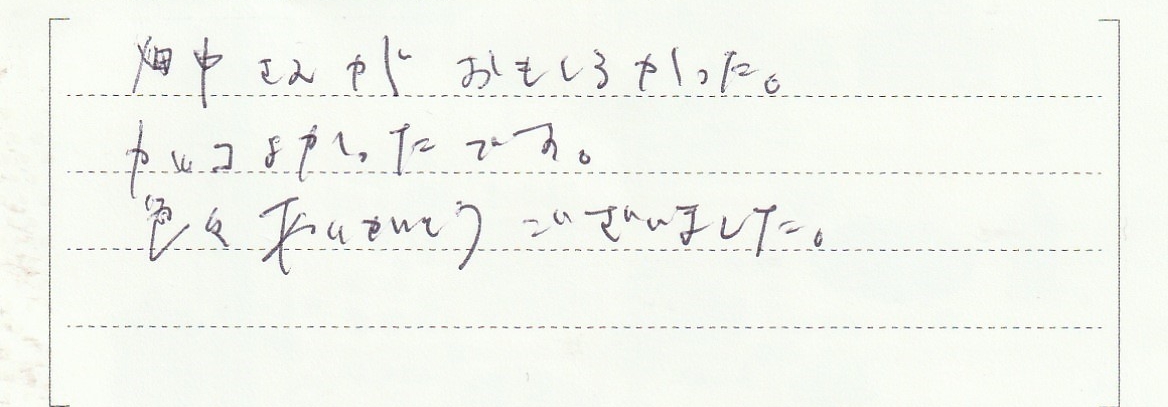 畑中さんがおもしろかった。
カッコよかったです。
色々ありがとうございました。